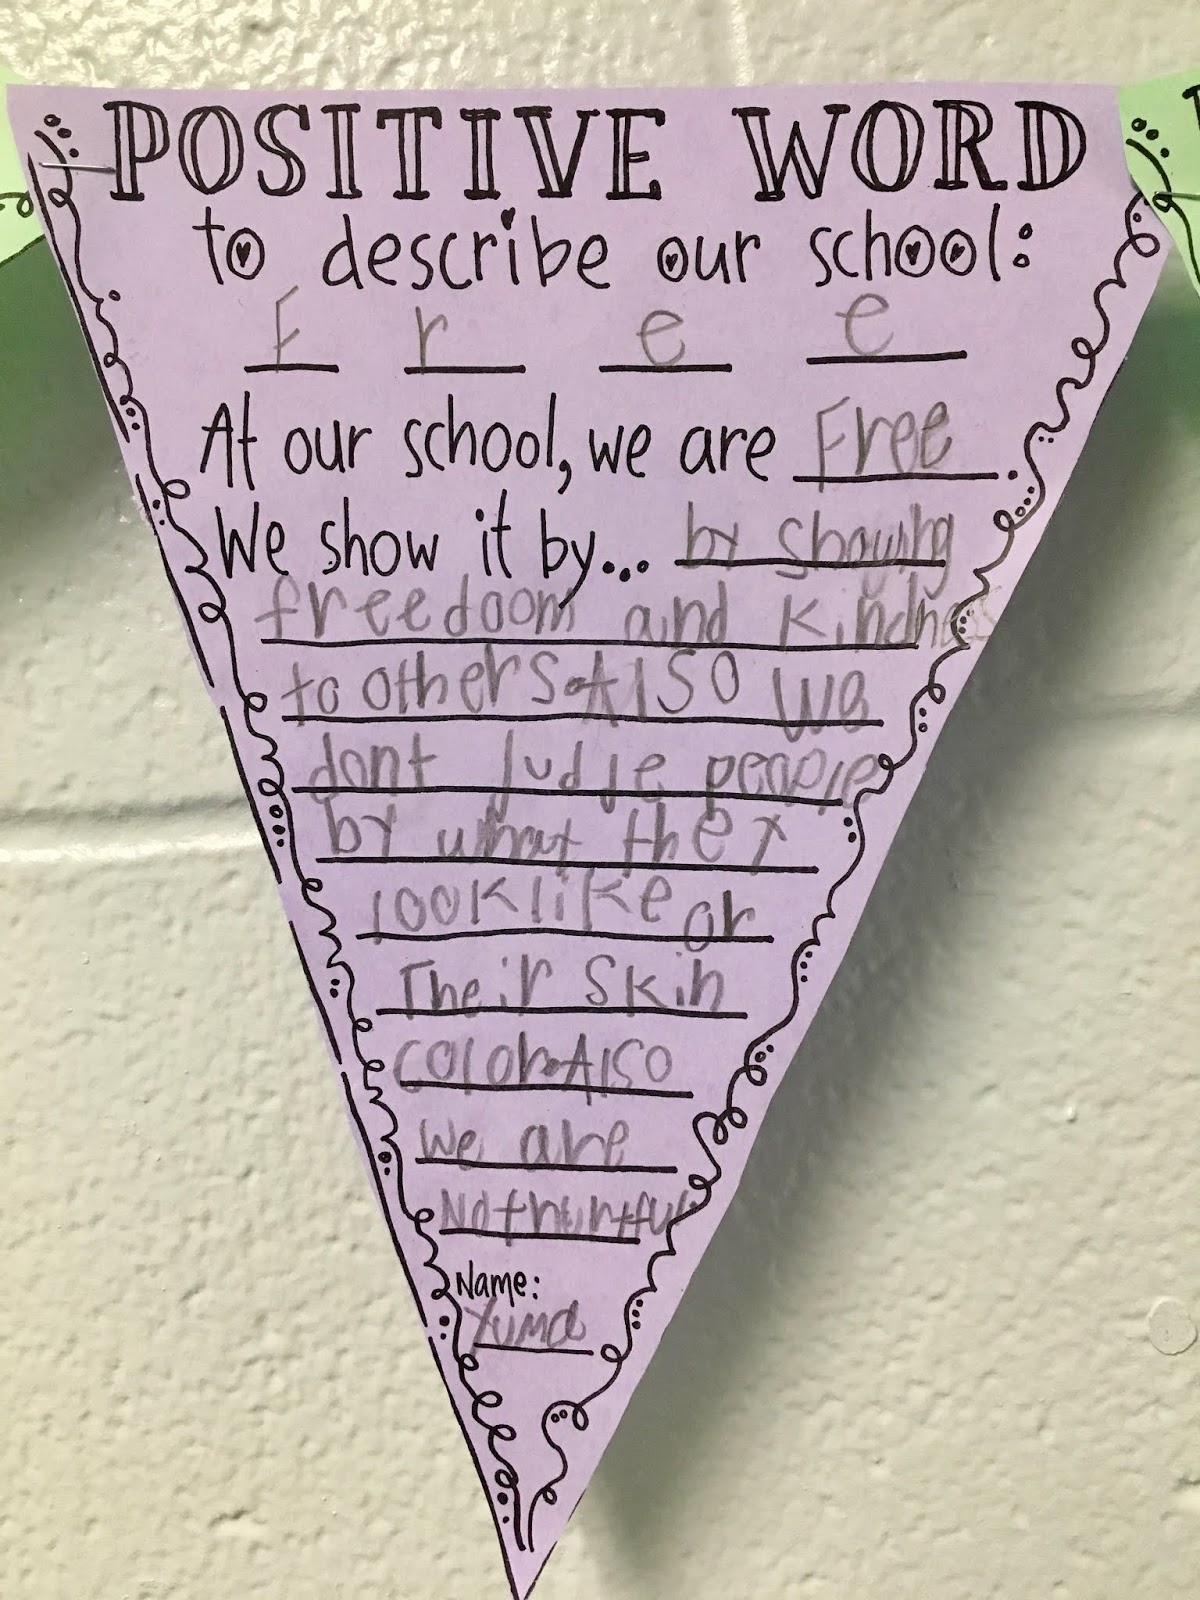 POSITIVE WORD
to describe our school:
F r e e
At our school, we are Free.
We show it by... by shouing
freedoom and kindness
to others. Also we
dont judje people
by what they
look like or
Their skin
color. Also
we are
Not hurtful
Name:
Yuma